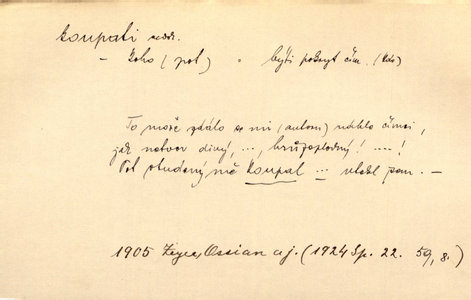 koupati ned.
– koho (pot) = býti pokryt čím. (kdo)
To moře zdálo se mi (autom) náhle čímsi,
jak netvor divý, …, hrůzoplodný! ––!
Pot studený mě koupal … vlekl jsem. –
1905 Zeyer, Ossian a j. (1924 Sp. 22. 59, 8.)